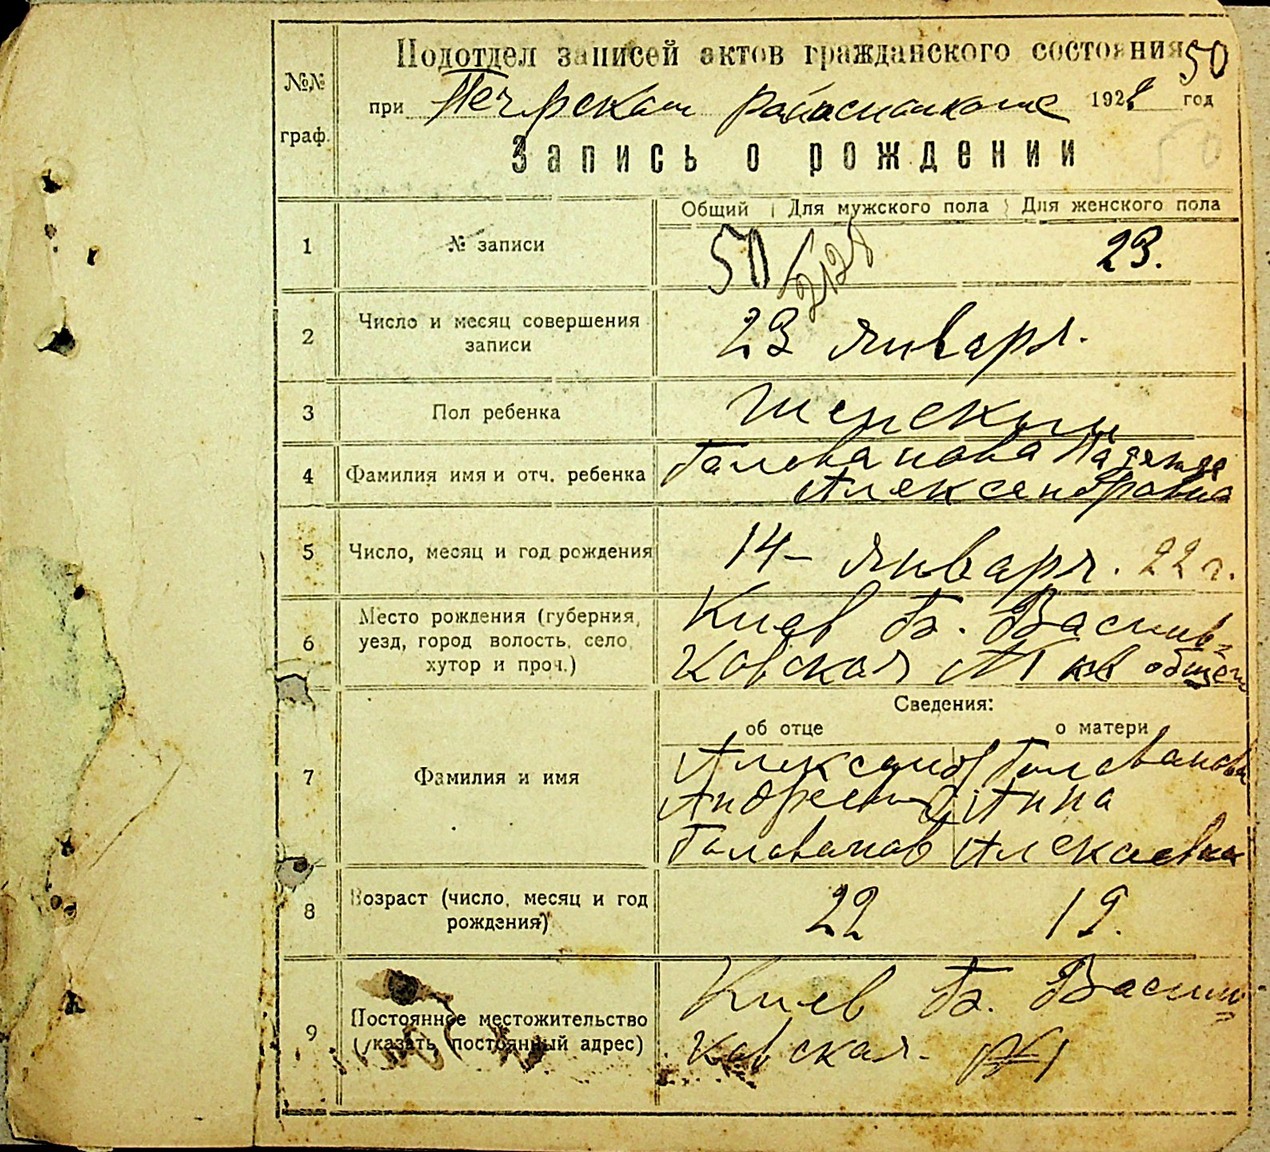 50
Подотдел записей актов гражданского состояния
№№ граф.
при Печерском 1922 год
50
Запись о рождении
Общий Для мужского пола Для женского пола
1 № записи 50 2128 23.
2 Число и месяц совершения записи 23 января.
3 Пол ребенка женский
4 Фамилия имя и отч. ребенка Голованова Надежда
Александровна
5 Число, месяц и год рождения 14 – января. 22 г.
6 Место рождения (губерния, уезд, город волость, село, хутор и проч.) Киев Б. Василь=
ковская №1 кв
Сведения:
об отце о матери
7 Фамилия и имя
Александр Голованова
Андреевич Анна
Голованов Алексеевна
8 Возраст (число, месяц и год рождения) 22 19.
9 Постоянное местожительство (указать постоянный адрес) Киев Б. Василь=
ковская - №1